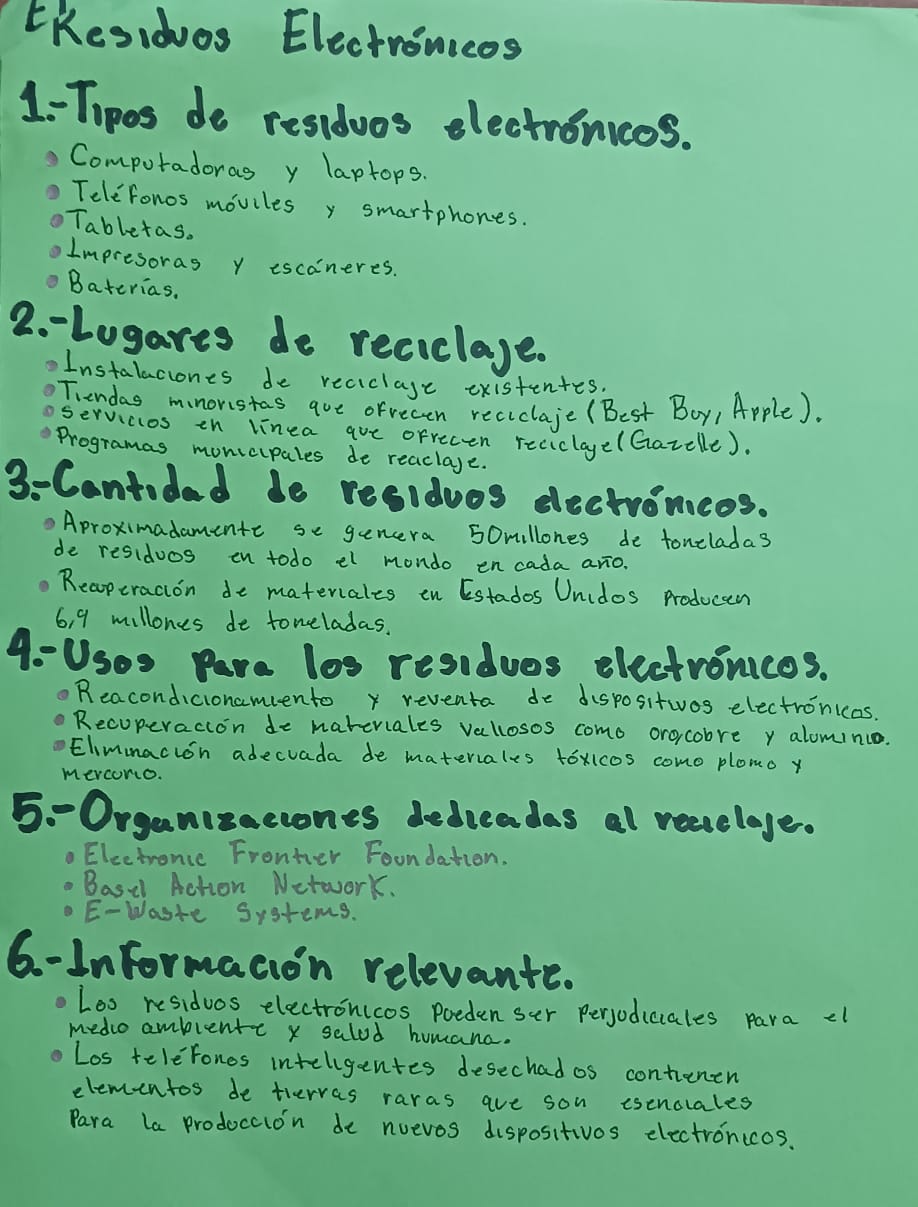 Residuos Electrónicos
1.-Tipos de residuos electrónicos.
• Computadoras y laptops.
• Teléfonos móviles y smartphones.
• Tabletas.
• Impresoras y escáneres.
• Baterías.
2.-Lugares de reciclaje.
• Instalaciones de reciclaje existentes.
• Tiendas minoristas que ofrecen reciclaje (Best Buy, Apple).
• Servicios en línea que ofrecen reciclaje (Gazelle).
• Programas municipales de reciclaje.
3.-Cantidad de residuos electrónicos.
• Aproximadamente se genera 50millones de toneladas
de residuos en todo el mundo en cada año.
• Recuperación de materiales en Estados Unidos Producen
6,9 millones de toneladas.
4.-Usos Para los residuos electrónicos.
• Reacondicionamiento y reventa de dispositivos electrónicos.
• Recuperación de materiales valiosos como oro, cobre y aluminio.
• Eliminación adecuada de materiales tóxicos como plomo y
mercurio.
5.-Organizaciones dedicadas al reciclaje.
• Electronic Frontier Foundation.
• Basel Action Network.
• E-Waste Systems.
6.-Información relevante.
• Los residuos electrónicos pueden ser perjudiciales para el
medio ambiente y salud humana.
• Los teléfonos inteligentes desechados contienen
elementos de tierras raras que son esenciales
Para la producción de nuevos dispositivos electrónicos.